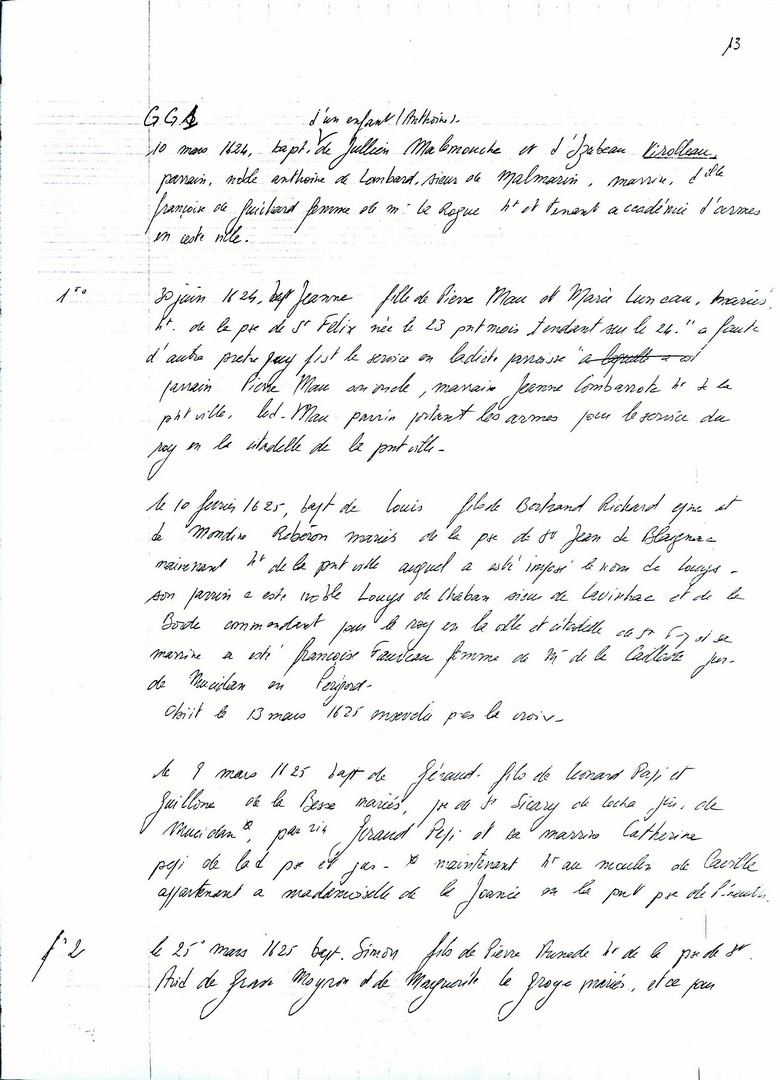 13
GG1 d'un enfant (Anthoine)
10 mars 1624, bapt. de Jullien Malemouche et d'Izabeau Virolleau,
parrain, noble anthoine de Lombard, sieur de Malmarin, marrine, d'elle
françoise de Guichard femme de mr la Roque ht et tenant accadémie d'armes
en ceste ville.
1ro 30 juin 1624, bapt Jeanne fille de Pierre Mau et Marie Luneau, mariés
ht. de la pse de St Felix née le 23 pnt mois tendant sur le 24. " a faute
d'autre pretre quy fist le service en ladicte parroisse " a laquelle a est
parrain Pierre Mau son oncle, marraine Jeanne Combarrote ht de la
pnt ville, led. Mau parrin portant les armes pour le service du
roy en la citadelle de la pnt ville -
le 10 febvrier 1625, bapt de Louis fils de Bertrand Richard et
de Mondine Roberon mariés de la pse de St Jean de Blaignac
maintenant ht de la pnt ville auquel a esté imposé le nom de Louys -
son parrin a este noble Louys de Chaban sieur de et de la
Borde commandant pour le roy en la ville et citadelle de St et sa
marrine a esté françoise Fauveau femme de Mr de la jur.
de Mucidan en Perigord -
Obiit le 13 mars 1625 ensevelie pres la croix -
le 9 mars 1625 bapt de Géraud fils de Leonard Peji et
Guillone de la Besse mariés, pse de St Sicary de jur. de
Mucidan *, parrin Geraud Peji et sa marrine Catherine
peji de lad pse et jur - * maintenant ht au moulin de
appartenant a mademoiselle de la Joanie en la pnt pse de
f° 2 le 25 mars 1625 bapt. Simon fils de Pierre ht de la pse de St
de Grave Moyron et de Marguerite la mariés, et ce pour